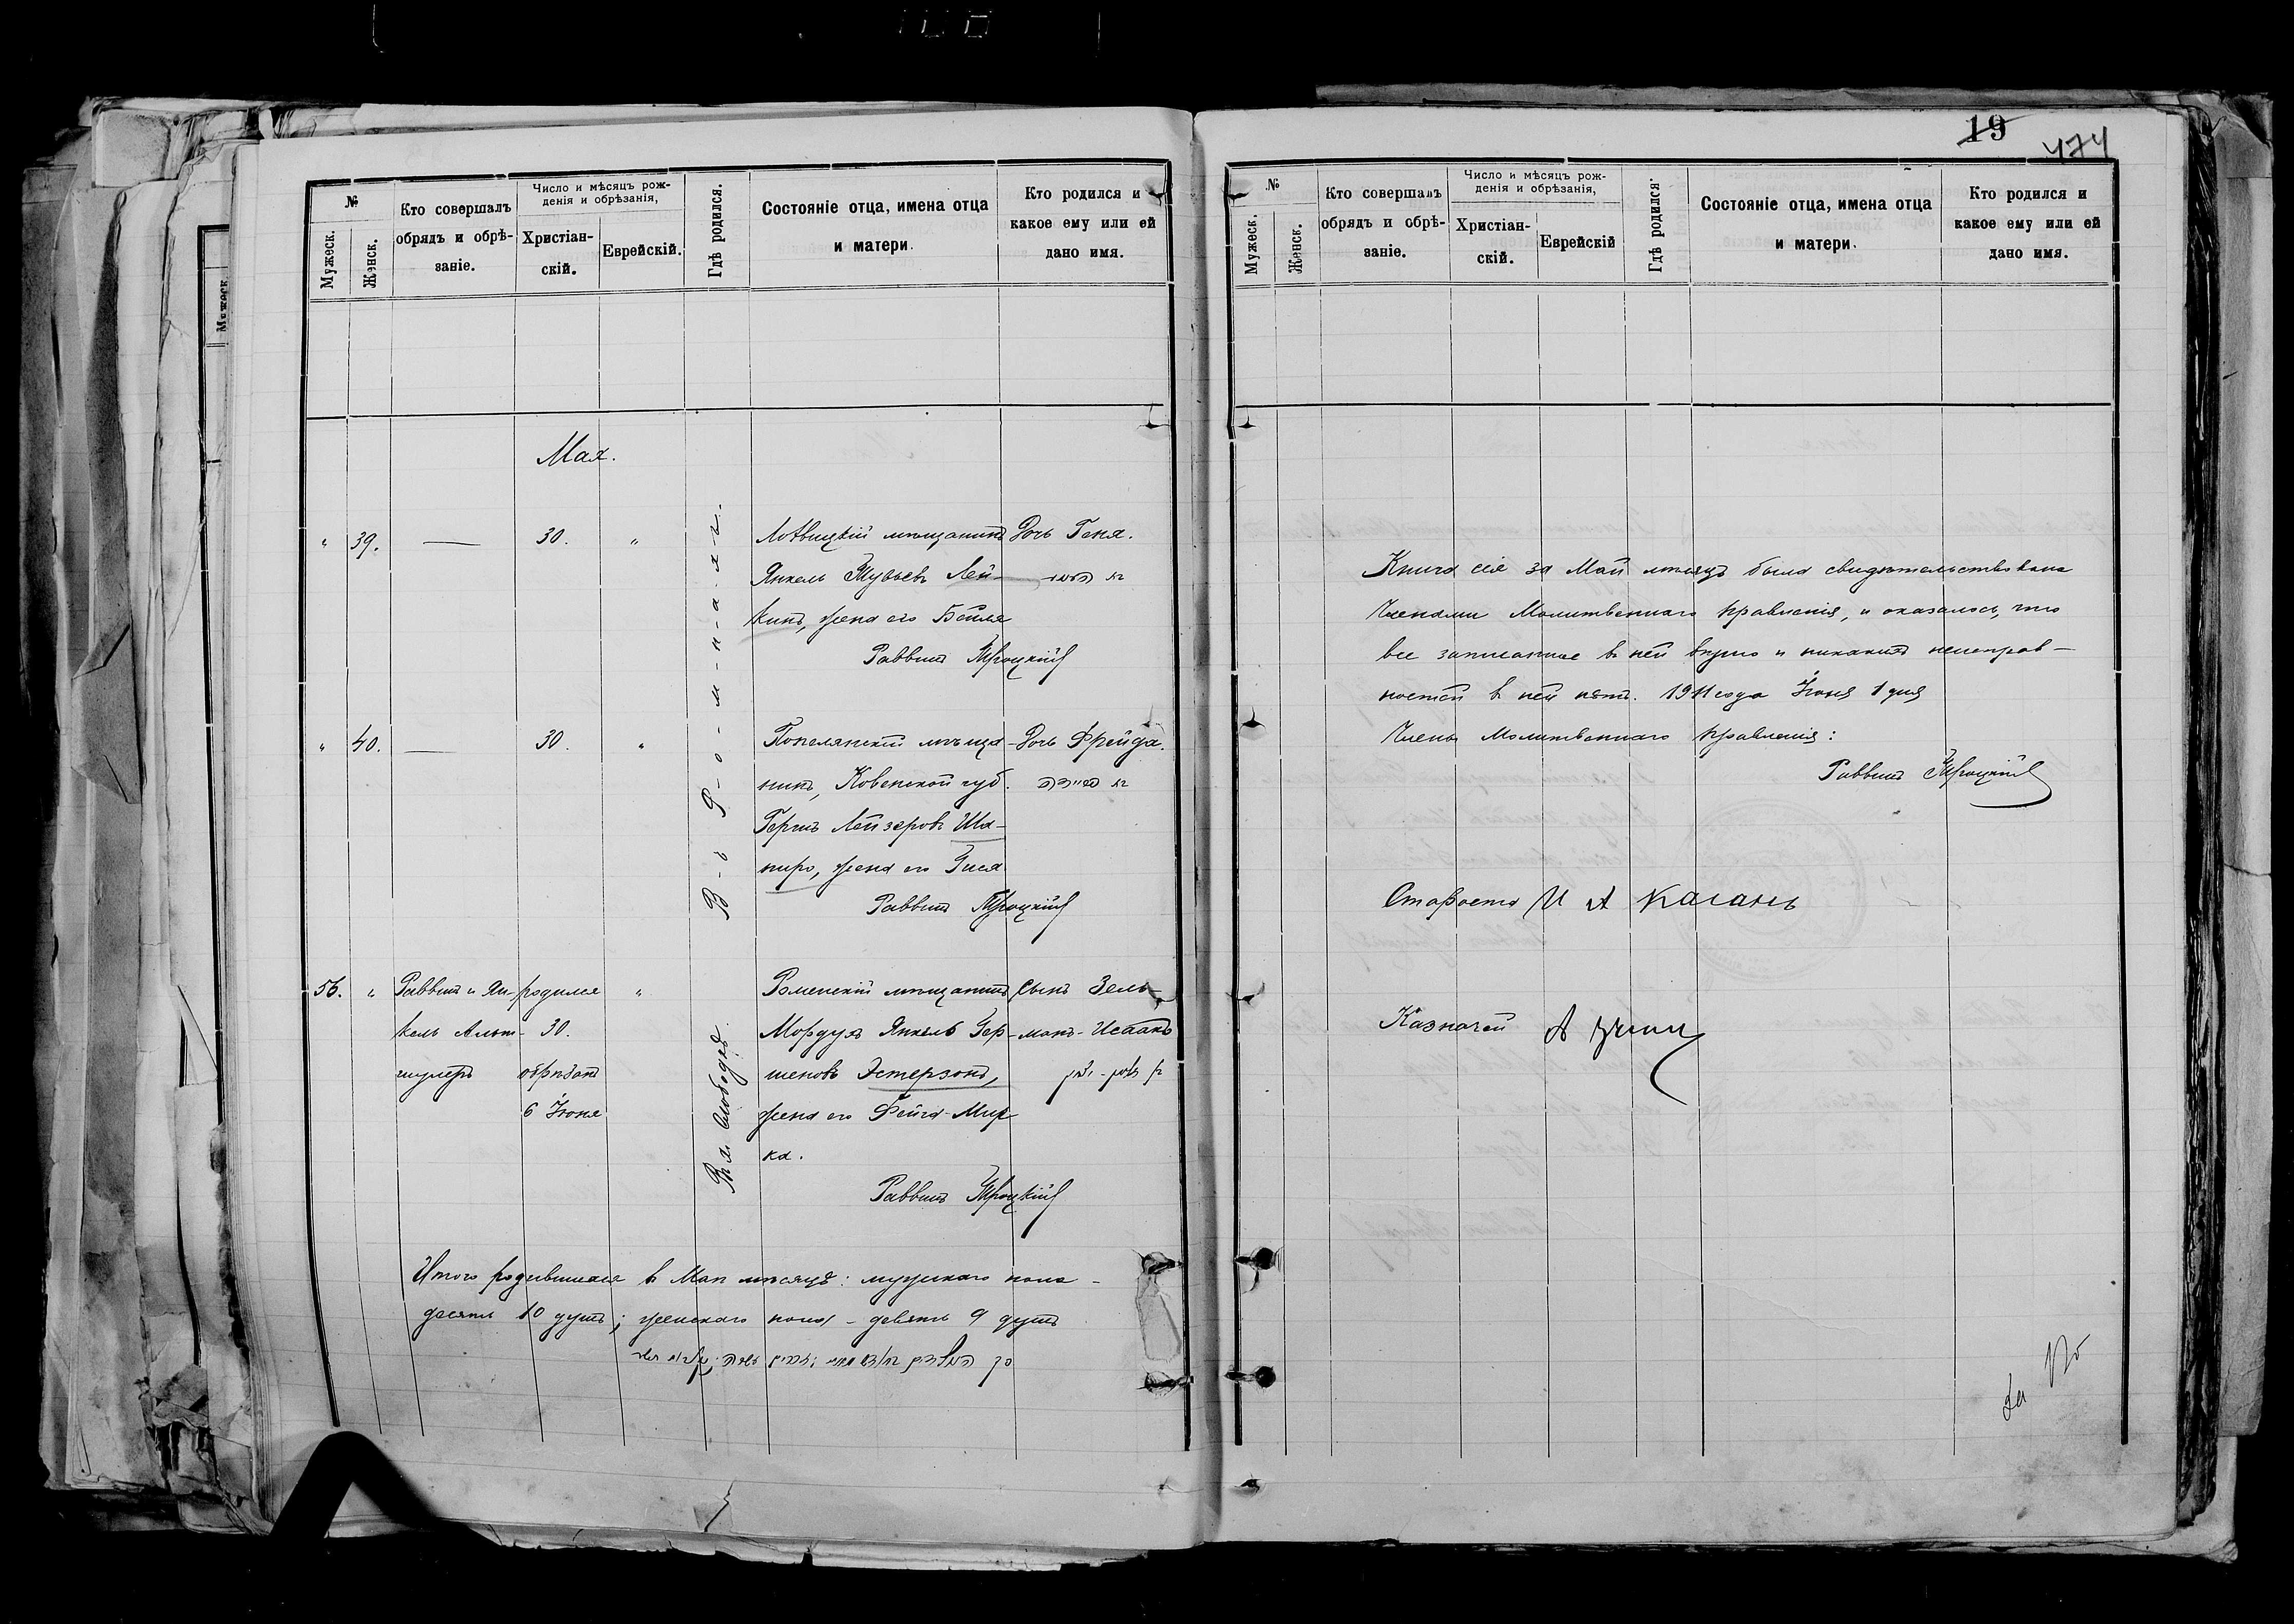 №
Мужеск.
Женск.
Кто совершалъ
обрядъ и обрѣ-
заніе.
Число и мѣсяцъ рож-
денія и обрѣзанія,
Христіан-
скій.
Еврейскій.
Гдѣ родился.
Состояніе отца, имена отца
и матери.
Кто родился и
какое ему или ей
дано имя.
Мая.
" 39. — 30. "
мѣщанинъ Дочь Геня.
Янкель Тувьевъ Лей-
кинъ, жена его Бейля
Раввинъ Троцкій
" 40. — 30. "
мѣща- Дочь Фрейда.
нинъ, Ковенской губ.
Гершъ Лейзеровъ Ша-
пиро, жена его Гися
Раввинъ Троцкій
В-ъ Р-о-м-н-а-х-ъ.
56. " Раввинъ и Ян- родился "
кель Альт- 30.
шулеръ обрѣзанъ
6 Іюня
Роменскій мѣщанинъ Сынъ Зель-
Мордухъ Янкель Гер- манъ-Исаакъ
шеновъ Эстерзонъ,
жена его Фейга-Мир
ка.
Раввинъ Троцкій
слободѣ
Итого родившихся въ Маѣ мѣсяцѣ: мужскаго пола -
десять 10 душъ; женскаго пола - девять 9 душъ
19
474
№
Мужеск.
Женск.
Кто совершалъ
обрядъ и обрѣ-
заніе.
Число и мѣсяцъ рож-
денія и обрѣзанія,
Христіан-
скій.
Еврейскій
Гдѣ родился.
Состояніе отца, имена отца
и матери.
Кто родился и
какое ему или ей
дано имя.
Книга сія за Май мѣсяцъ была свидѣтельствована
Членами Молитвеннаго Правленія, и оказалось, что
все записанное въ ней вѣрно и никакихъ неисправ-
ностей въ ней нѣтъ. 1911 года Іюня 1 дня
Члены Молитвеннаго Правленія:
Раввинъ Троцкій
Староста И А Каганъ
Казначей А